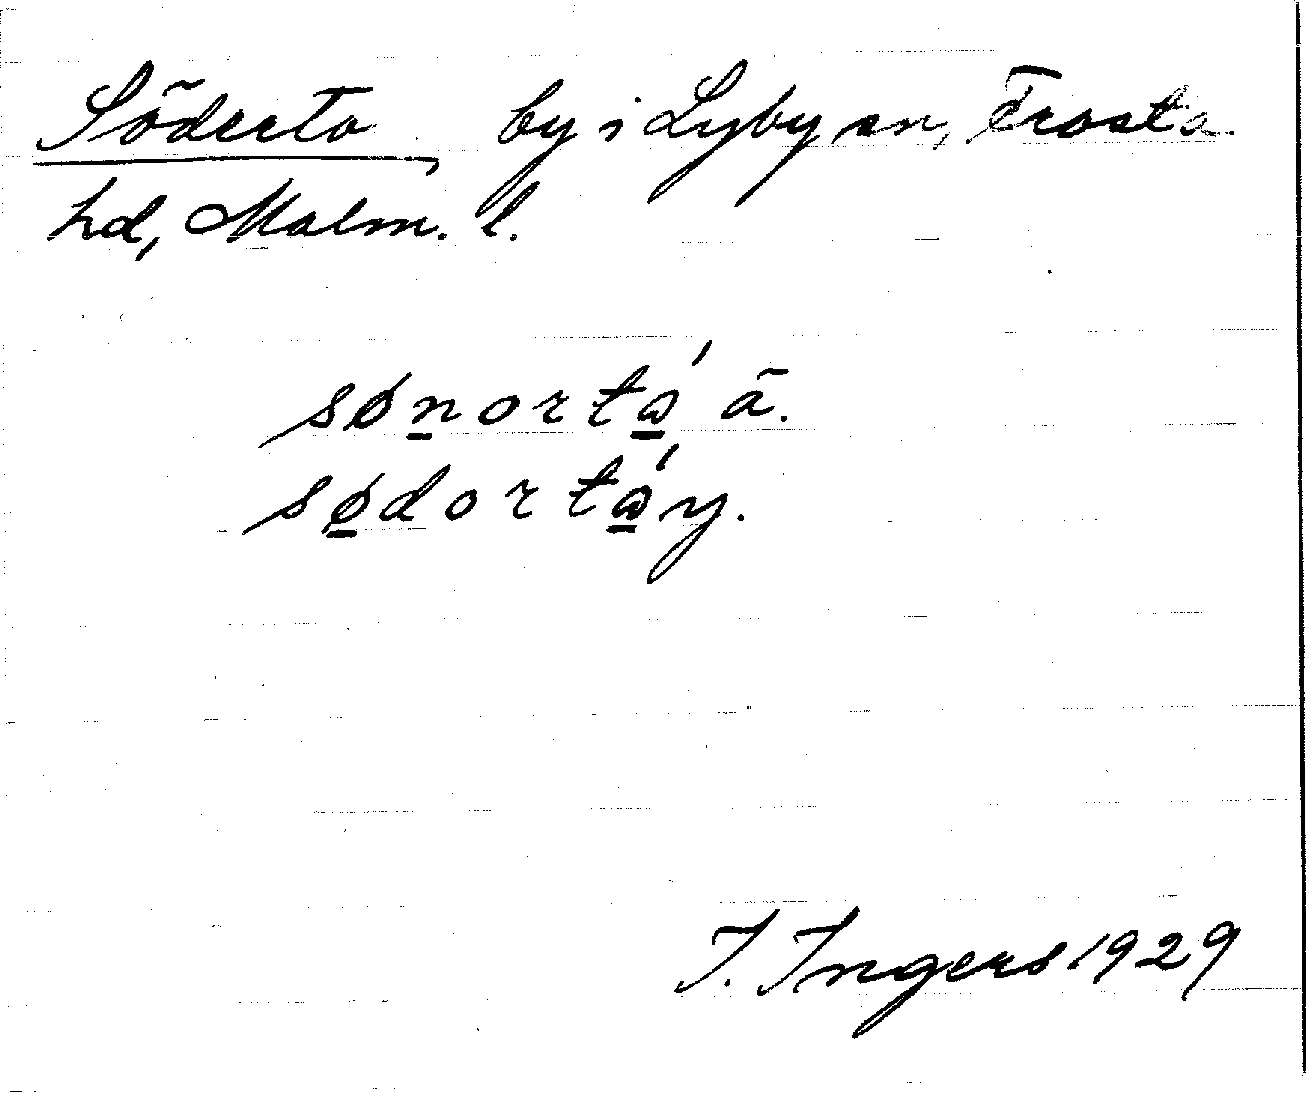 Söderto, by i Lyby sn, Frosta
hd, Malm. l.
sønortá̱ ä.
sø̱dortá̱ y.
I. Ingers 1929